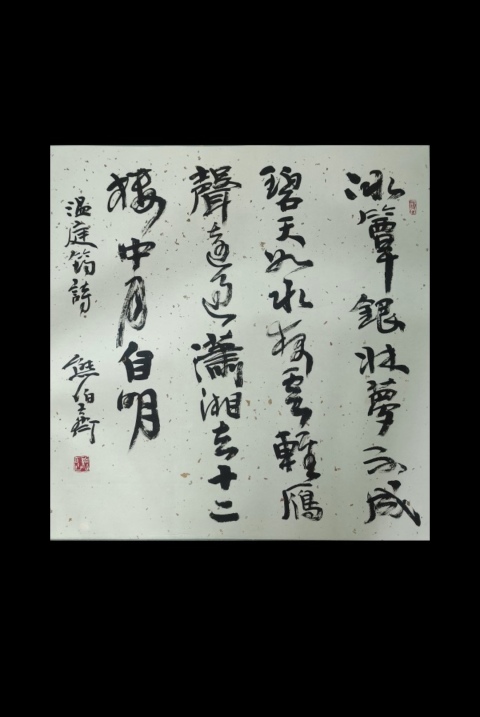 冰簟銀牀夢不成
碧天如水夜雲輕鴈
聲遠過瀟湘去十二
樓中月自明
温庭筠詩 熊伯齊